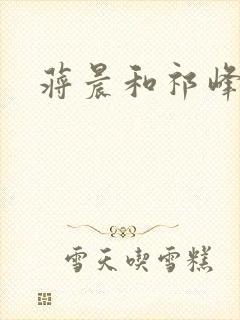 蒋晨和祁峰
雪天喫雪糕